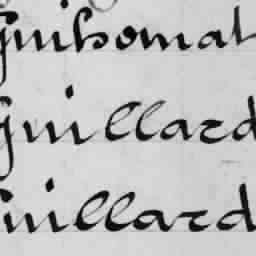 Guihomat
Guillard
Guillard